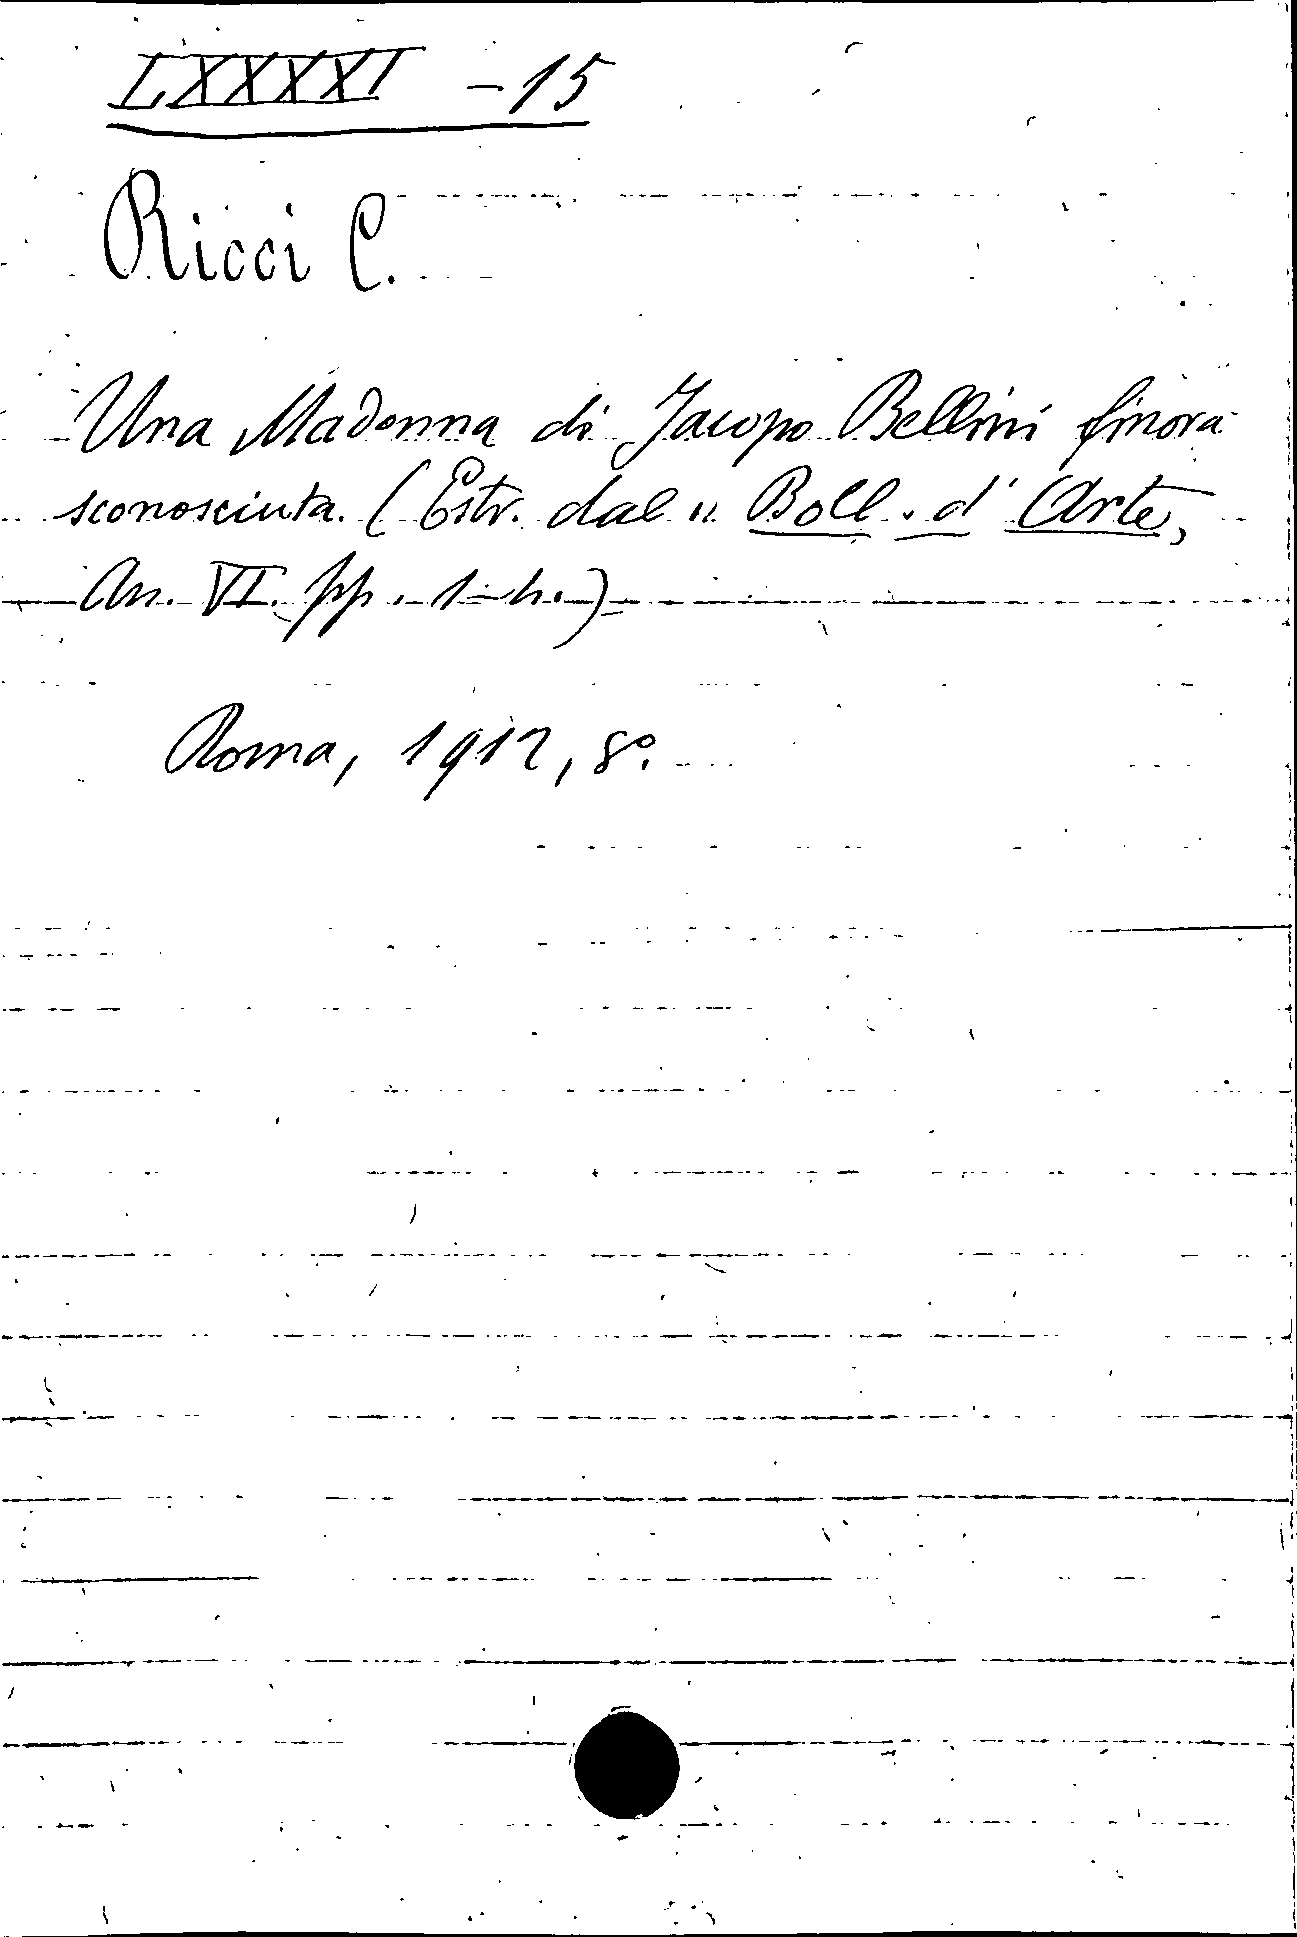 LXXXXI - 15
Ricci C.
Una Madonna di Jacopo Bellini finora
sconosciuta. (Estr. dal " Boll. d' Arte,
An. VI. pp. 1-4.)
Roma, 1912, 8°.